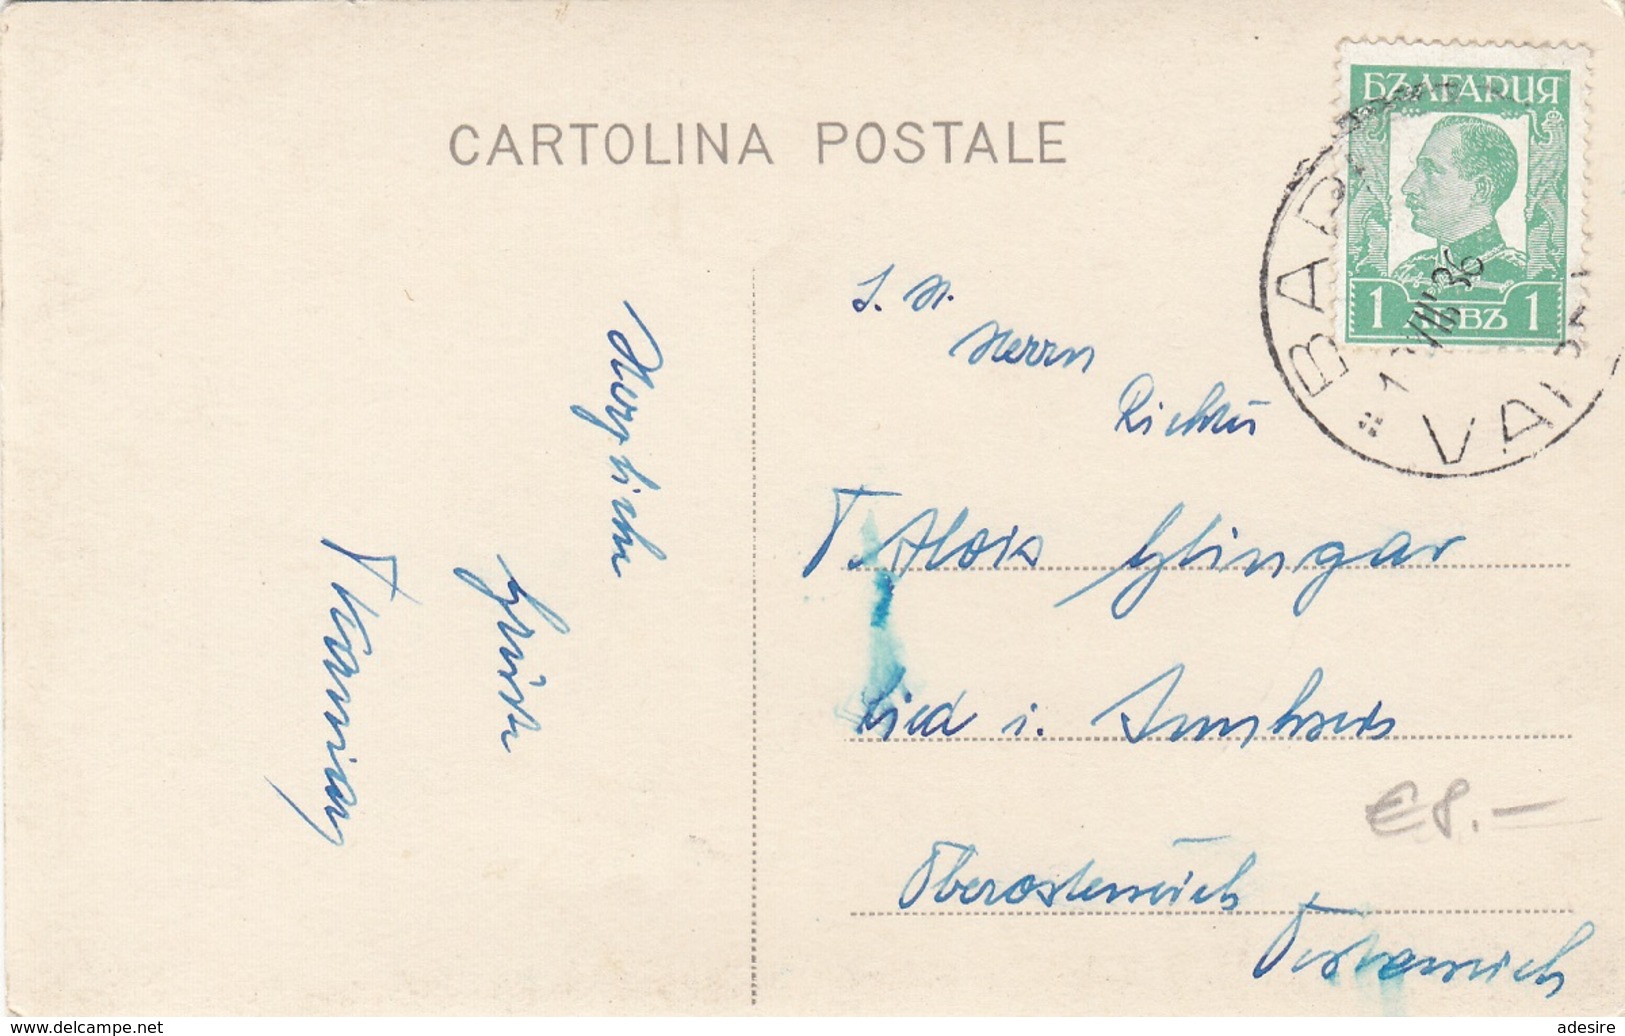 CARTOLINA POSTALE
БЪЛГАРИЯ
1 ЛВЪ 1
ВАР
VIII 36
VAR
Herzliche
Grüße
S. H.
Herrn
Alois Glingar
Ried i. Innkreis
€8.-
Oberösterreich
Österreich
www.delcampe.net
adesire